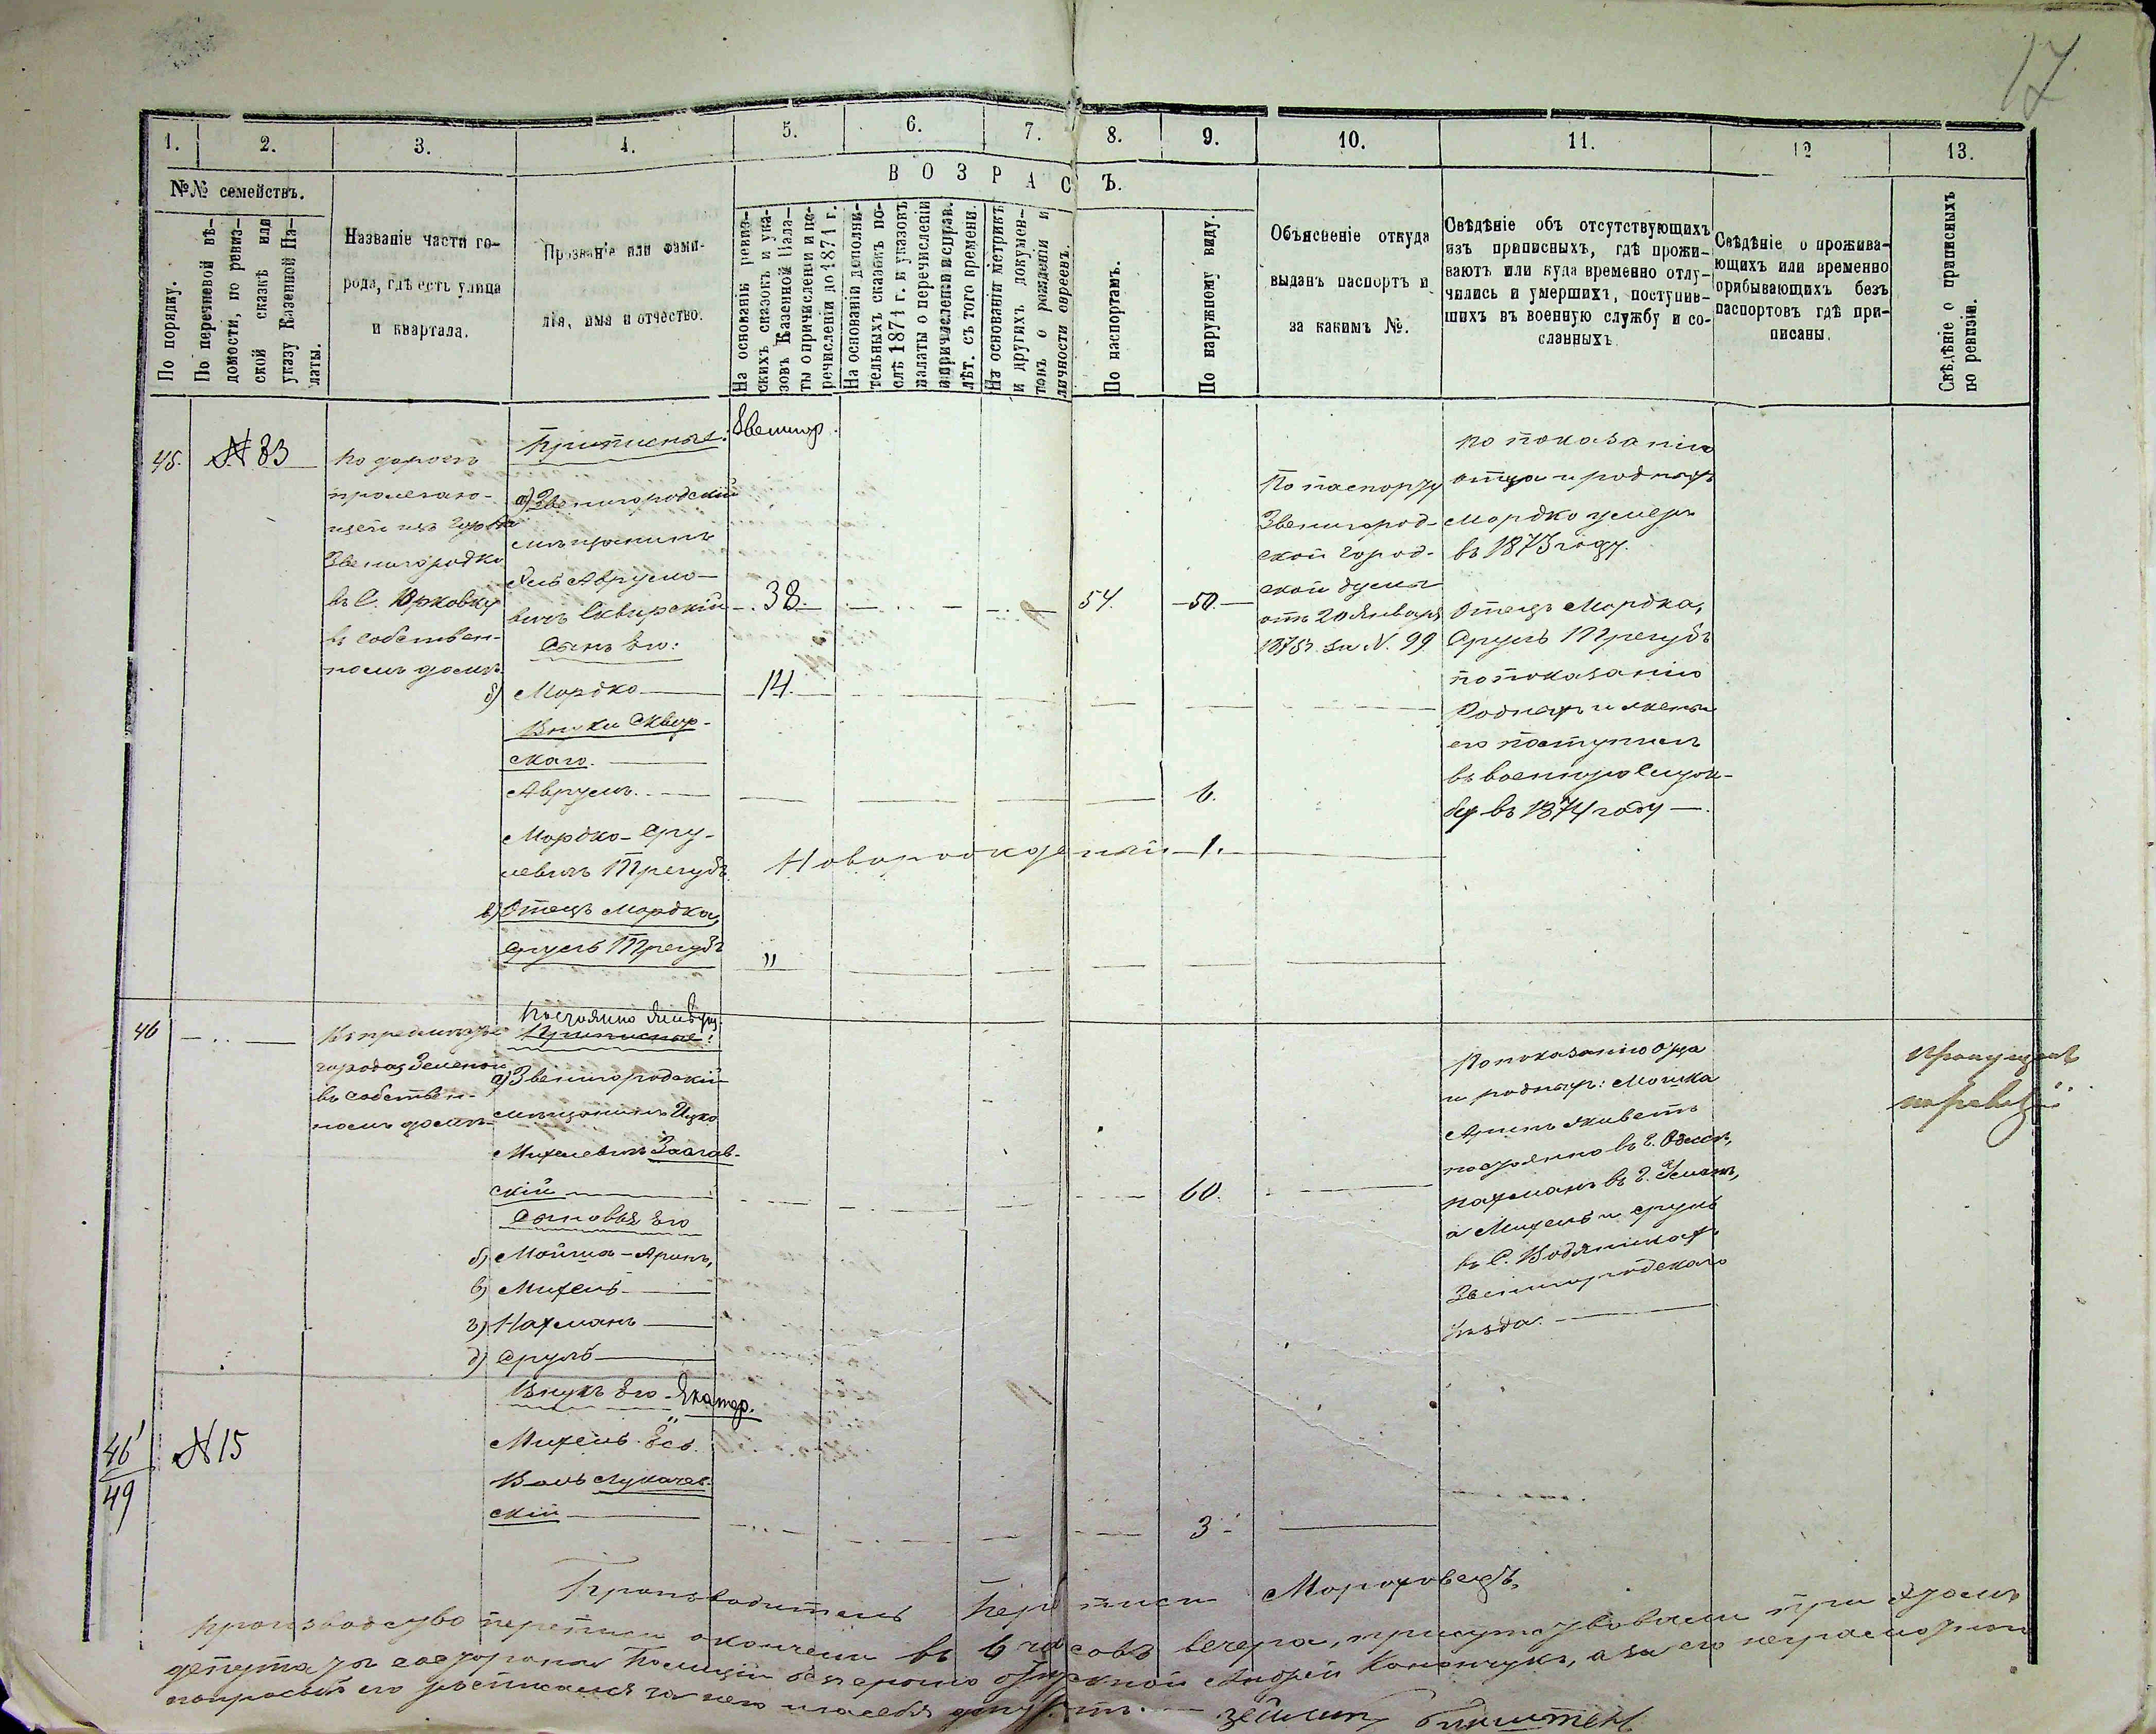 17
1. 2. 3. 4. 5. 6. 7. 8. 9. 10. 11. 12 13.
№№ семействъ.
По порядку.
По перечневой вѣ-
домости, по ревиз-
ской сказкѣ или
указу Казенной Па-
латы.
Названіе части го-
рода, гдѣ есть улица
и квартала.
Прозваніе или фами-
лія, имя и отчество.
ВОЗРАСТЪ.
На основаніи ревиз-
скихъ сказокъ и ука-
зовъ Казенной Пала-
ты о причисленіи и пе-
речисленіи до 1874 г.
На основаніи дополни-
тельныхъ сказокъ по-
слѣ 1874 г. и указовъ
палаты о перечисленіи
и причисленіи и исправ.
лѣт. съ того времени.
На основаніи метрикъ
и другихъ докумен-
товъ о рожденіи и
личности евреевъ.
По паспортамъ.
По наружному виду.
Объясненіе откуда
выданъ паспортъ и
за какимъ №.
Свѣдѣніе объ отсутствующихъ
изъ приписныхъ, гдѣ прожи-
ваютъ или куда временно отлу-
чились и умершихъ, поступив-
шихъ въ военную службу и со-
сланныхъ.
Свѣдѣніе о прожива-
ющихъ или временно
прибывающихъ безъ
паспортовъ гдѣ при-
писаны.
Свѣдѣніе о приписныхъ
по ревизіи.
45. N 83
По дорогѣ
пролегаю-
щей изъ города
Звенигородки
въ С. Юрковку
въ собствен-
номъ домѣ.
Приписные:
Звенигор.
а) Звенигородскій
мѣщанинъ
Аврумо-
вичъ Сквирскій 38. 54. 50.
Сынъ Его:
б) Мордко 14.
Внуки Сквир-
скаго.
Аврумъ. 6.
Мордко-Сру-
левичъ Трегубъ Новорожденный 1.
в) Отецъ Мордка,
Сруль Трегубъ "
По паспорту
Звенигород-
ской город-
ской думы
отъ 20 Января
за N. 99
По показанію
отца и родныхъ
Мордко умеръ
въ 1873 году.
Отецъ Мордка,
Сруль Трегубъ
по показанію
Родныхъ и жены
его поступилъ
въ военную служ-
бу въ 1874 году.
46
Въ предмѣстьѣ
города Зеленой
въ собствен-
номъ домѣ
Постоянно живущ.
Приписные:
а) Звенигородскій
мѣщанинъ Ицко
Михелевичъ Заслав-
скій 60.
Сыновья Его
б) Мойша-Аронъ,
в) Михель
г) Нахманъ
д) Сруль
По показанію отца
и родныхъ: Мошка
Аронъ живетъ
постоянно въ г. Одессѣ,
Нахманъ въ г. Умани,
а Михель и Сруль
въ С. Водяникахъ
Звенигородскаго
уѣзда.
Пропущенъ
по ревизіи
46/49 N 15
Внукъ Его Екатер.
Михель
Лукачев-
скій 3
Производитель Переписи Мороховецъ.
Производство переписи окончено въ 6 часовъ вечера, присутствовали при этомъ
депутатъ со стороны Полиціи Андрей Кононъчукъ, а за его неграмотно